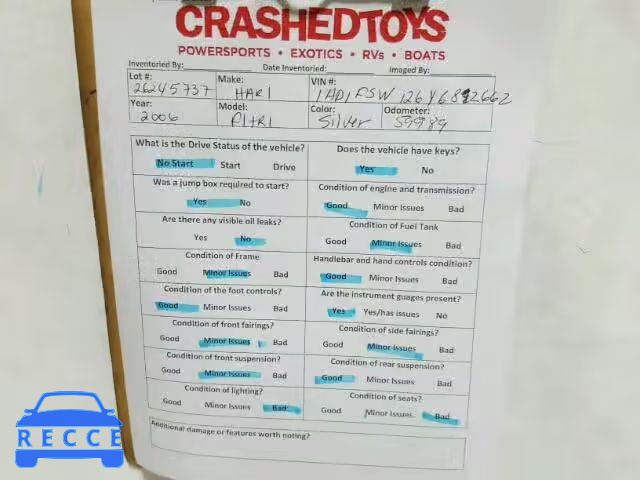 CRASHEDTOYS
POWERSPORTS • EXOTICS • RVs • BOATS
Inventoried By: Date Inventoried: Imaged By:
Lot #: Make: VIN #:
26245737 HARI 1HD1FSW126Y682662
Year: Model: Color: Odometer:
2006 FLTRI Silver 59989
What is the Drive Status of the vehicle? Does the vehicle have keys?
No Start Start Drive Yes No
Was a jump box required to start? Condition of engine and transmission?
Yes No Good Minor Issues Bad
Are there any visible oil leaks? Condition of Fuel Tank
Yes No Good Minor Issues Bad
Condition of Frame Handlebar and hand controls condition?
Good Minor Issues Bad Good Minor Issues Bad
Condition of the foot controls? Are the instrument guages present?
Good Minor Issues Bad Yes Yes/has issues No
Condition of front fairings? Condition of side fairings?
Good Minor Issues Bad Good Minor Issues Bad
Condition of front suspension? Condition of rear suspension?
Good Minor Issues Bad Good Minor Issues Bad
Condition of lighting? Condition of seats?
Good Minor Issues Bad Good Minor Issues Bad
Additional damage or features worth noting?
RECCE